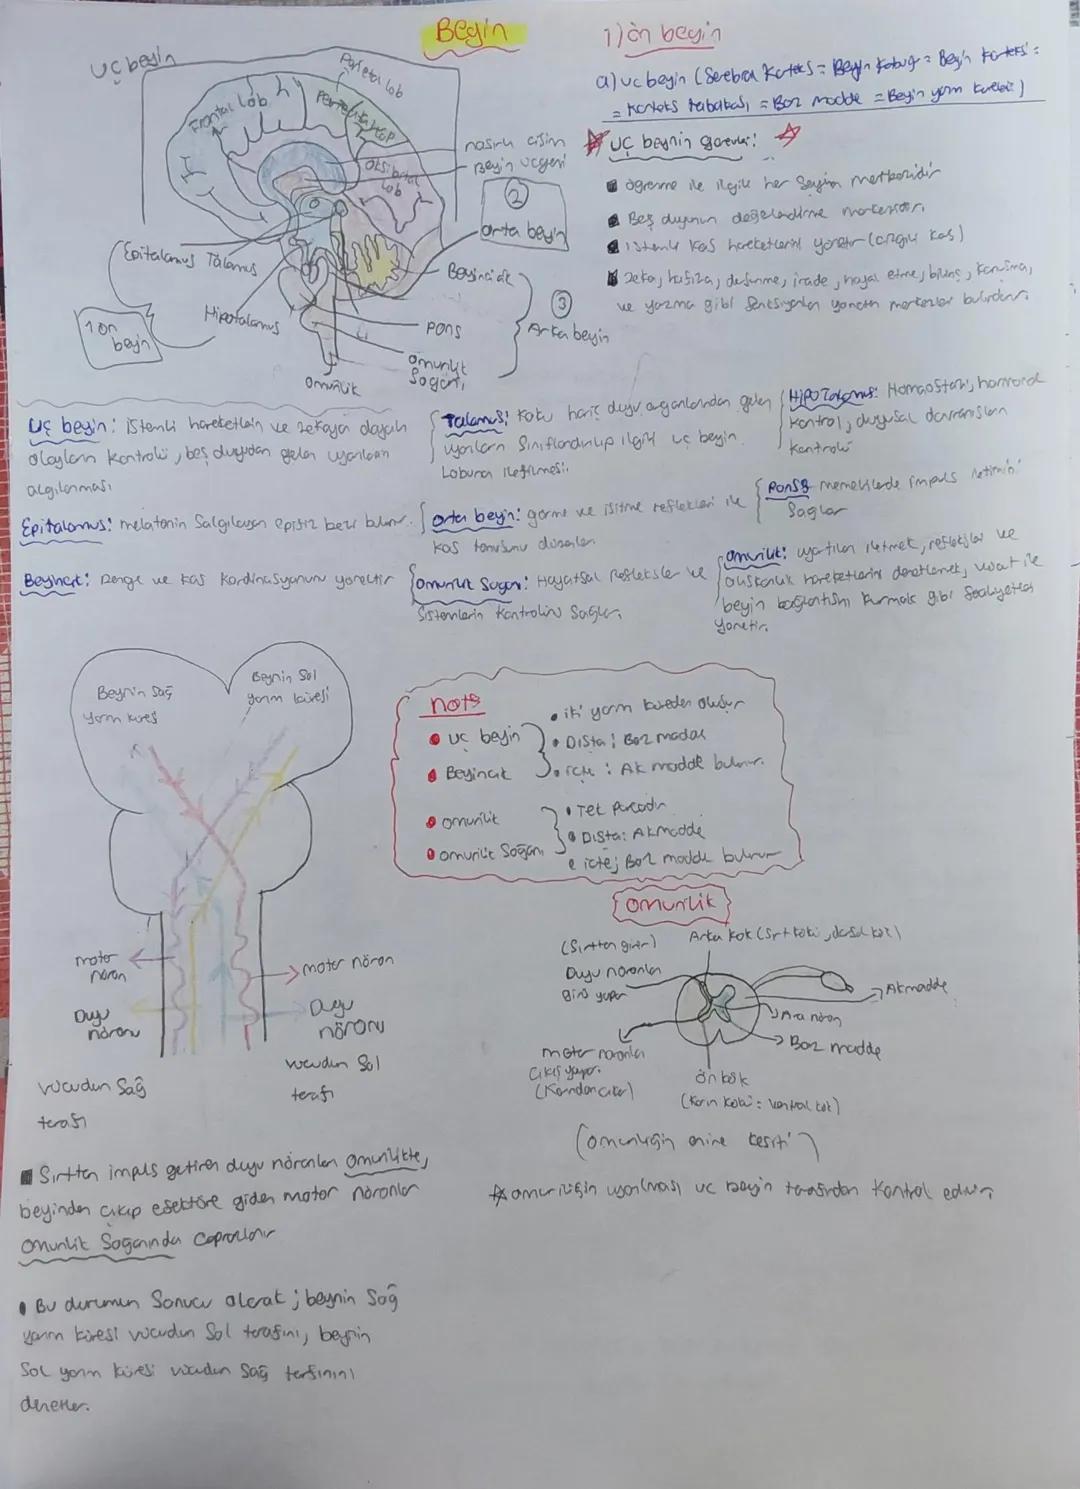 Beyin
1) ön beyin
a) uc beyin (Serebral Korteks = Beyin Kabuğu = Beyin Korteksi =
= Korteks tabakası = Boz madde = Beyin yarım küreleri)
UÇ beynin görevleri:
öğrenme ile ilgili her şeyin merkezidir
Beş duyunun değelendirme merkezidir.
istemli kas hareketlerini yönetir (çizgili kas)
Zeka, hafıza, düşünme, irade, hayal etme, bilinç, konuşma,
ve yazma gibi fonksiyonları yöneten merkezler bulundurur.
Uç beyin
Frontal lob
Parietal lob
Oksibital lob
nasırlı cisim
Beyin üçgeni
2
orta beyin
Epitalamus Talamus
Hipotalamus
1 ön beyin
Beyincik
3
Arka beyin
pons
omurilik Soğanı
Omurilik
Uç beyin: istemli hareketlerin ve zekaya dayalı
olayların kontrolü, beş duyudan gelen uyarıların
algılanması
Talamus: Koku hariç duyu organlarından gelen
uyarıların Sınıflandırılıp ilgili uç beyin
Lobuna iletilmesi.
HipoTalamus: Homeostazi, hormonal
kontrol, duygusal davranışların
kontrolü
Epitalamus: melatonin Salgılayan epifiz bezi bulunur.
Orta beyin: görme ve işitme refleksleri ile
kas tonusunu düzenler
Pons: memelilerde impuls iletimini
Sağlar
Beyincik: Denge ve kas kordinasyonunu yönetir
Omurilik Soğanı: Hayatsal Refleksler ve
Sistemlerin Kontrolünü Sağlar.
Omurilik: uyartıları iletmek, refleksler ve
alışkanlık hareketlerini denetlemek, vücut ile
beyin bağlantısını kurmak gibi faaliyetleri
yönetir.
Beynin Sağ
yarım küresi
Beynin Sol
yarım küresi
motor nöron
motor nöron
Duyu nöronu
Duyu nöronu
vücudun Sağ
tarafı
vücudun Sol
tarafı
note
uç beyin
Beyincik
iki yarım küreden oluşur
Dışta: Boz madde
içte: Ak madde bulunur.
omurilik
omurilik Soğanı
Tek parçadır
Dışta: Akmadde
içte; Boz madde bulunur
Omurilik
(Sırttan girer)
Duyu nöronları
giriş yapar
Arka kök (Sırt kökü, dorsal kök)
Akmadde
Ara nöron
Boz madde
motor nöronları
Çıkış yapar.
(Karından çıkar)
ön kök
(Karın kökü: Ventral kök)
(omuriliğin enine kesiti)
Sırttan impuls getiren duyu nöronları omurilikte,
beyinden çıkıp efektöre giden motor nöronlar
Omurilik Soğanında çaprazlanır
Bu durumun Sonucu olarak; beynin Sağ
yarım küresi vücudun Sol tarafını, beynin
Sol yarım küresi vücudun Sağ tarfınını
denetler.
omuriliğin uyarılması uc beyin tarafından kontrol edilir.